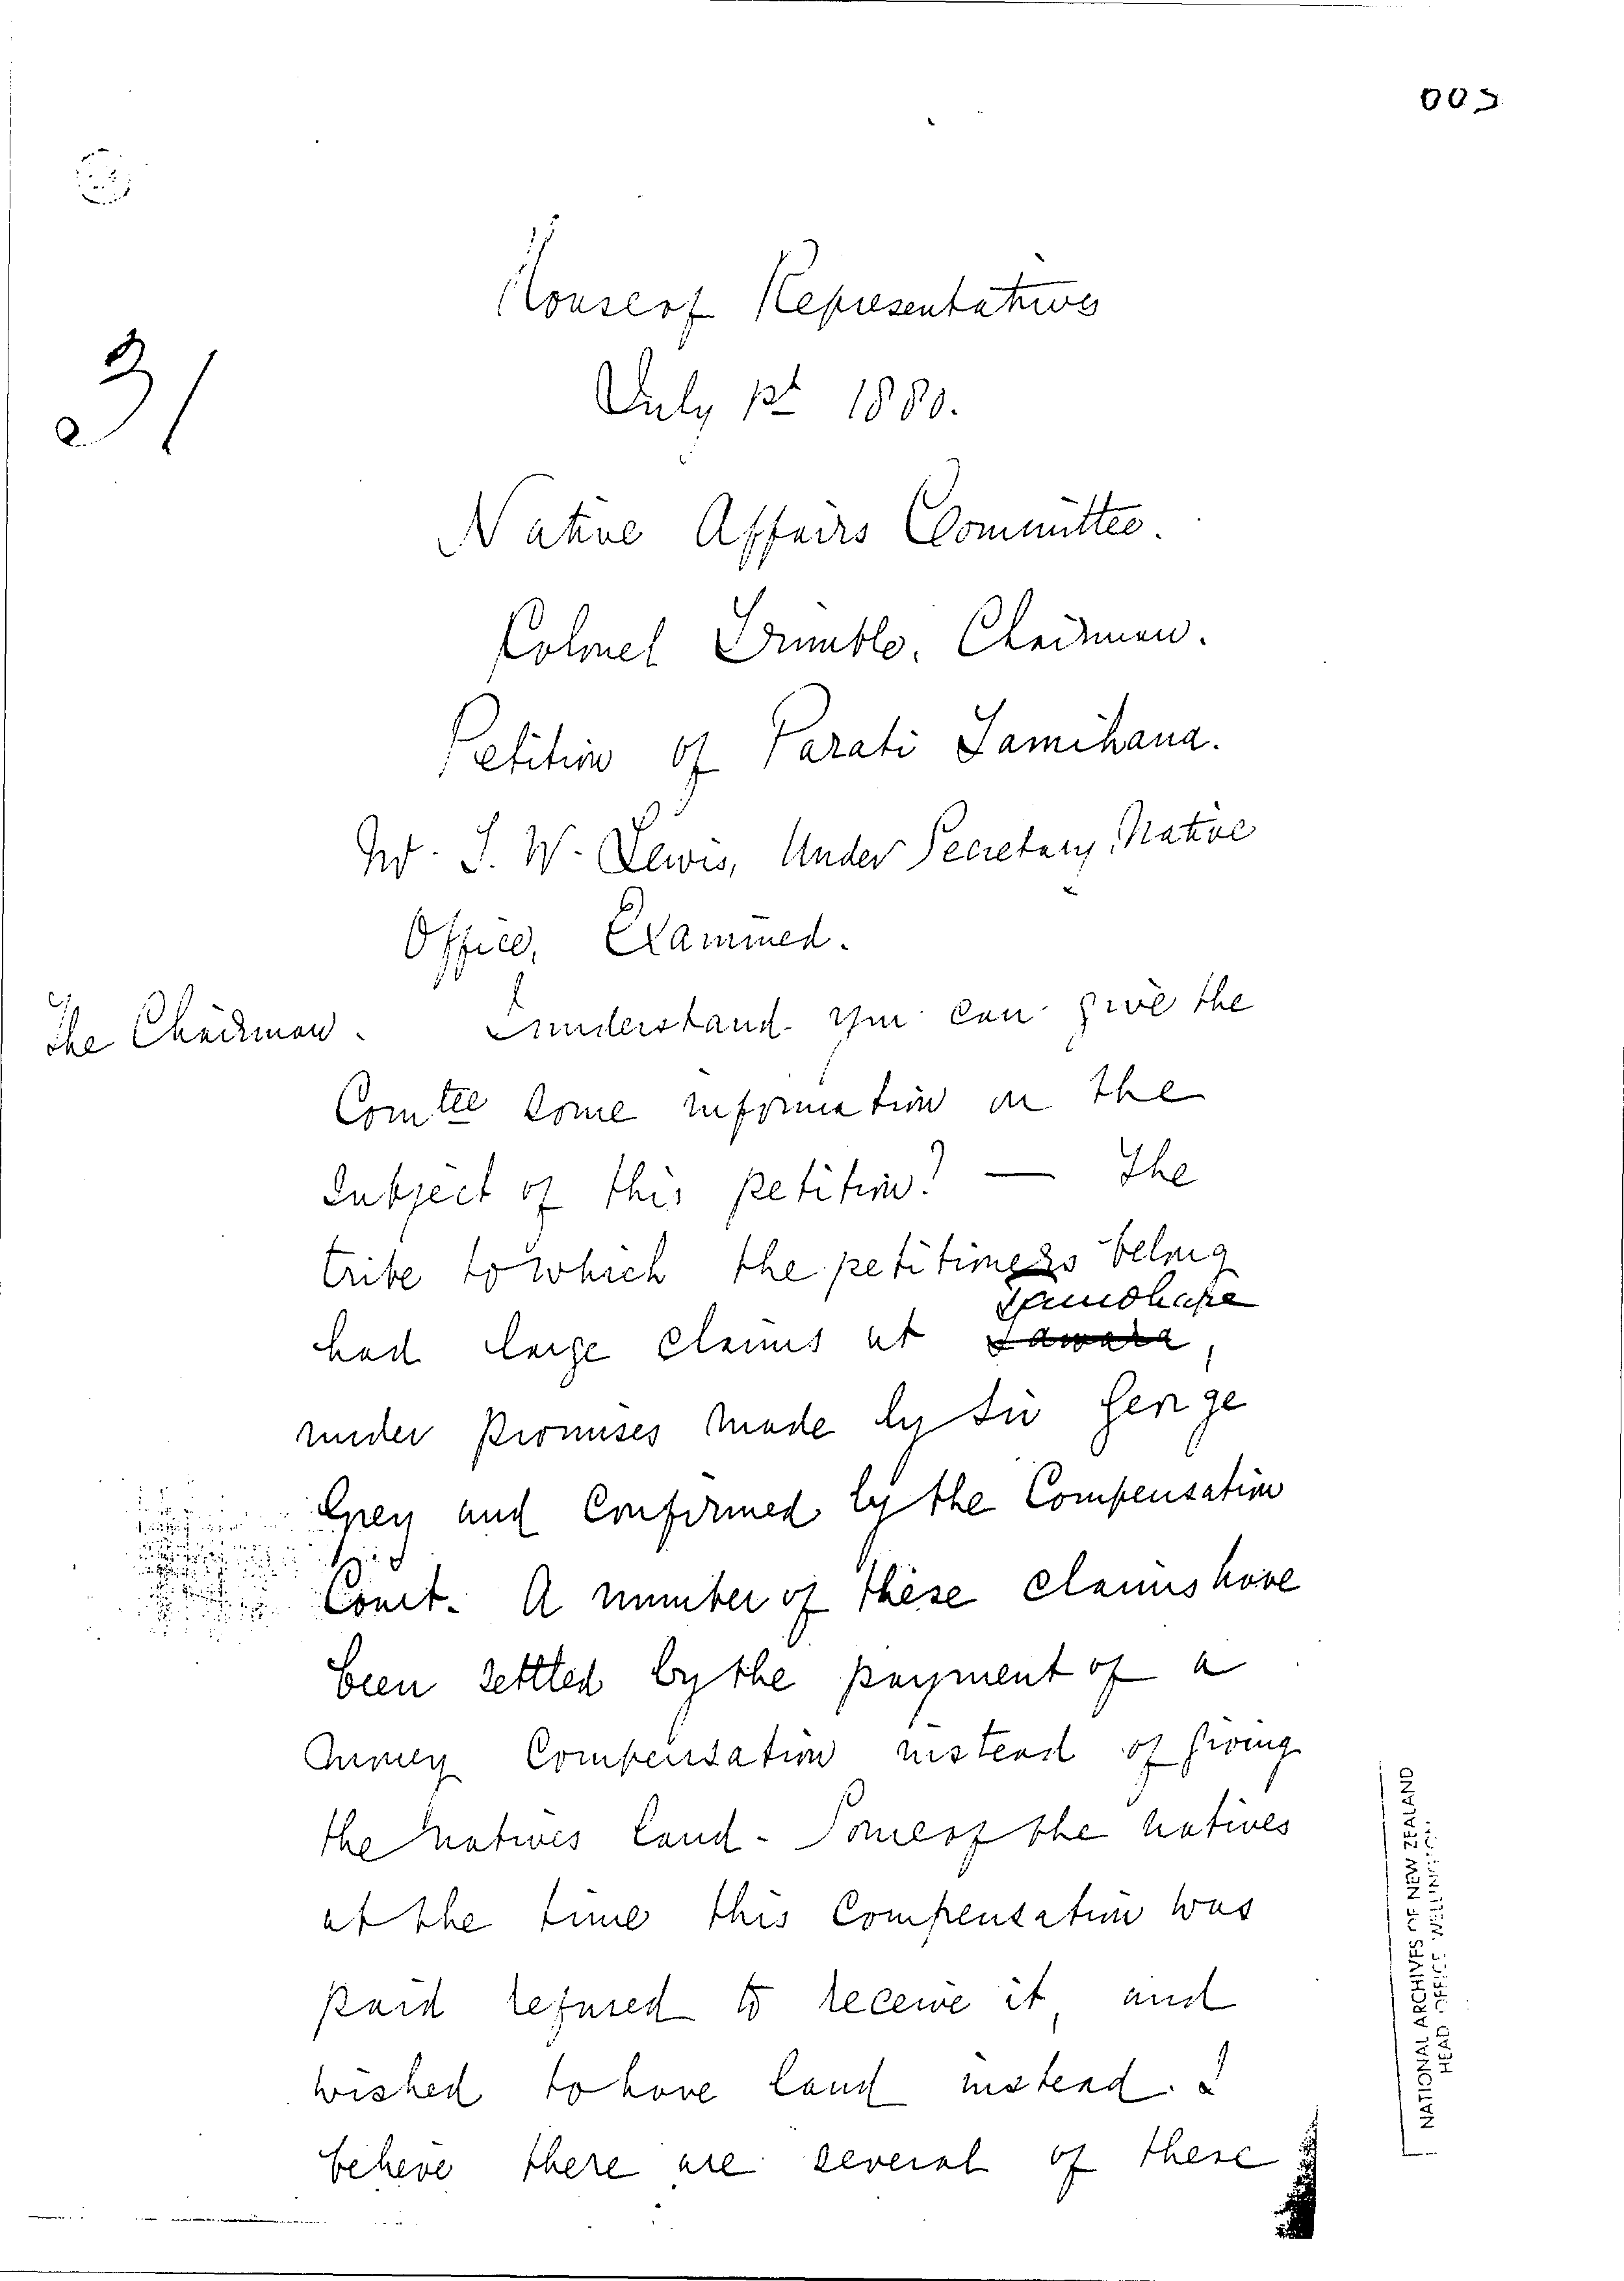 003
31
2
House of Representatives
July 1st 1880.
Native Affairs Committee.
Colonel Trimble, Chairman.
Petition of Parati Tamihana.
Mr. T. W. Lewis, Under Secretary, Native
Office, Examined.
The Chairman. I understand you can give the
Comtee some information on the
subject of this petition? — The
tribe to which the petitioners belong
had large claims at
under promises made by Sir George
Grey and confirmed by the Compensation
Court. A number of these claims have
been settled by the payment of a
money compensation instead of giving
the natives land. Some of the natives
at the time this compensation was
paid refused to receive it, and
wished to have land instead. I
believe there are several of these
NATIONAL ARCHIVES OF NEW ZEALAND
HEAD OFFICE WELLINGTON